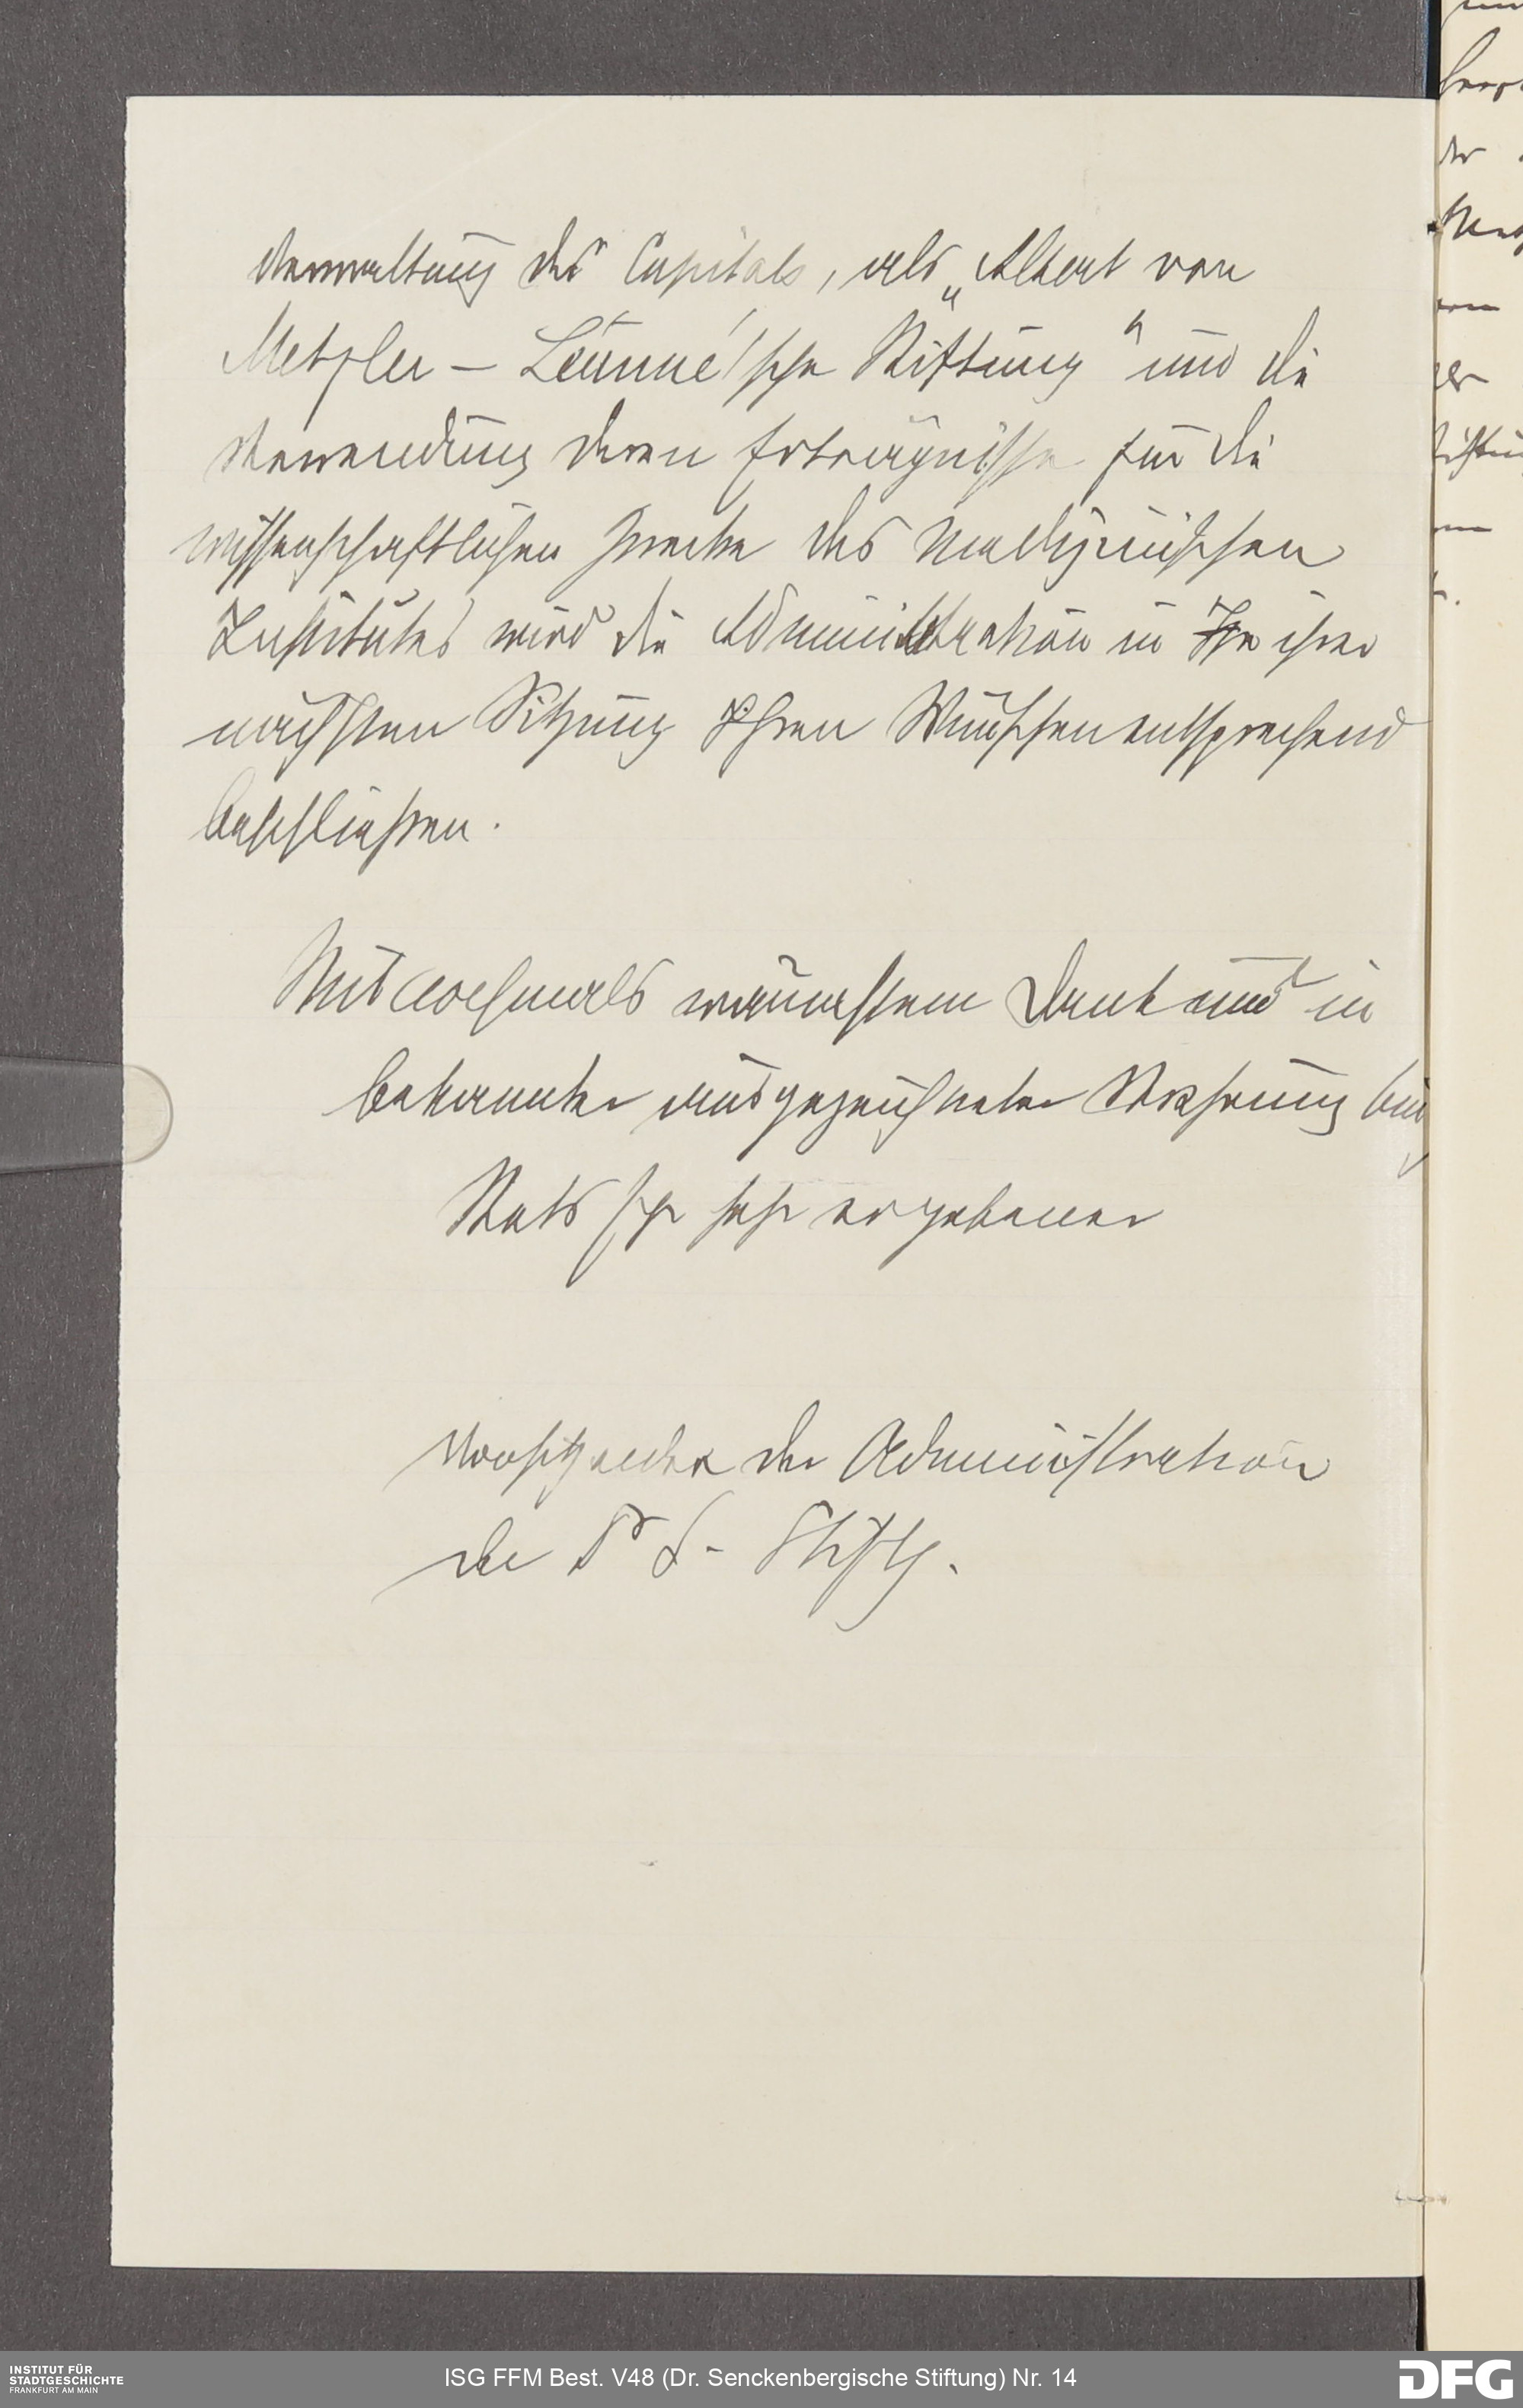 Verwaltung des Capitals, als „Albert von
Metzler - Leünne'sche Stiftung" und die
Verwendung deren Erträgnisse für die
wissenschaftlichen Zwecke des Medizinischen
Institutes wird die Administration in ihrer
nächsten Sitzung Ihren Wünschen entsprechend
beschließen.
Mit nochmals wärmstem Dank und in
bekannter ausgezeichneter Verehrung bin
Stets Ihr sehr ergebener
Vorsitzender der Administration
der Dr S- Stiftg.
INSTITUT FÜR
STADTGESCHICHTE
FRANKFURT AM MAIN
ISG FFM Best. V48 (Dr. Senckenbergische Stiftung) Nr. 14
DFG